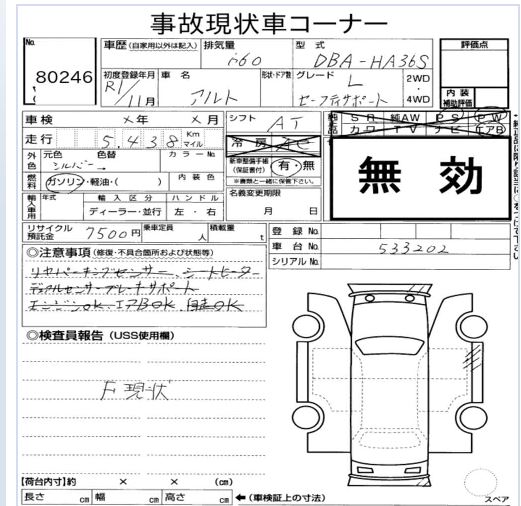 事故現状車コーナー
No. 80246
車歴 (自家用以外は記入) 排気量 660 型式 DBA-HA36S
評価点
初度登録年月 R1/11月 車名 アルト 形状・ドア数 グレード L セーフティサポート 2WD・4WD
内装補助評価
車検 ×年 ×月 シフト AT
純正品 SR 純AW PS PW
カワ TV ナビ エアB
走行 5,438 Km マイル
冷房
外色 元色 シルバー 色替 カラーNo.
新車整備手帳(保証書付) 有・無
※書類と一緒に保管下さい。
無効
燃料 ガソリン・軽油・( ) 内装色
輸入車用 年式 輸入区分 ハンドル
ディーラー・並行 左・右
名義変更期限
月 日
リサイクル預託金 7500円 乗車定員 人 積載量 t
登録No.
車台No. 533202
シリアルNo.
◎注意事項 (修復・不具合箇所および状態等)
リヤパーキングセンサー、シートヒーター
デュアルセンサーブレーキサポート
エンジンOK エアBOK 自走OK
◎検査員報告 (USS使用欄)
現状
【荷台内寸】約 × × (cm)
長さ cm 幅 cm 高さ cm ←(車検証上の寸法)
スペア